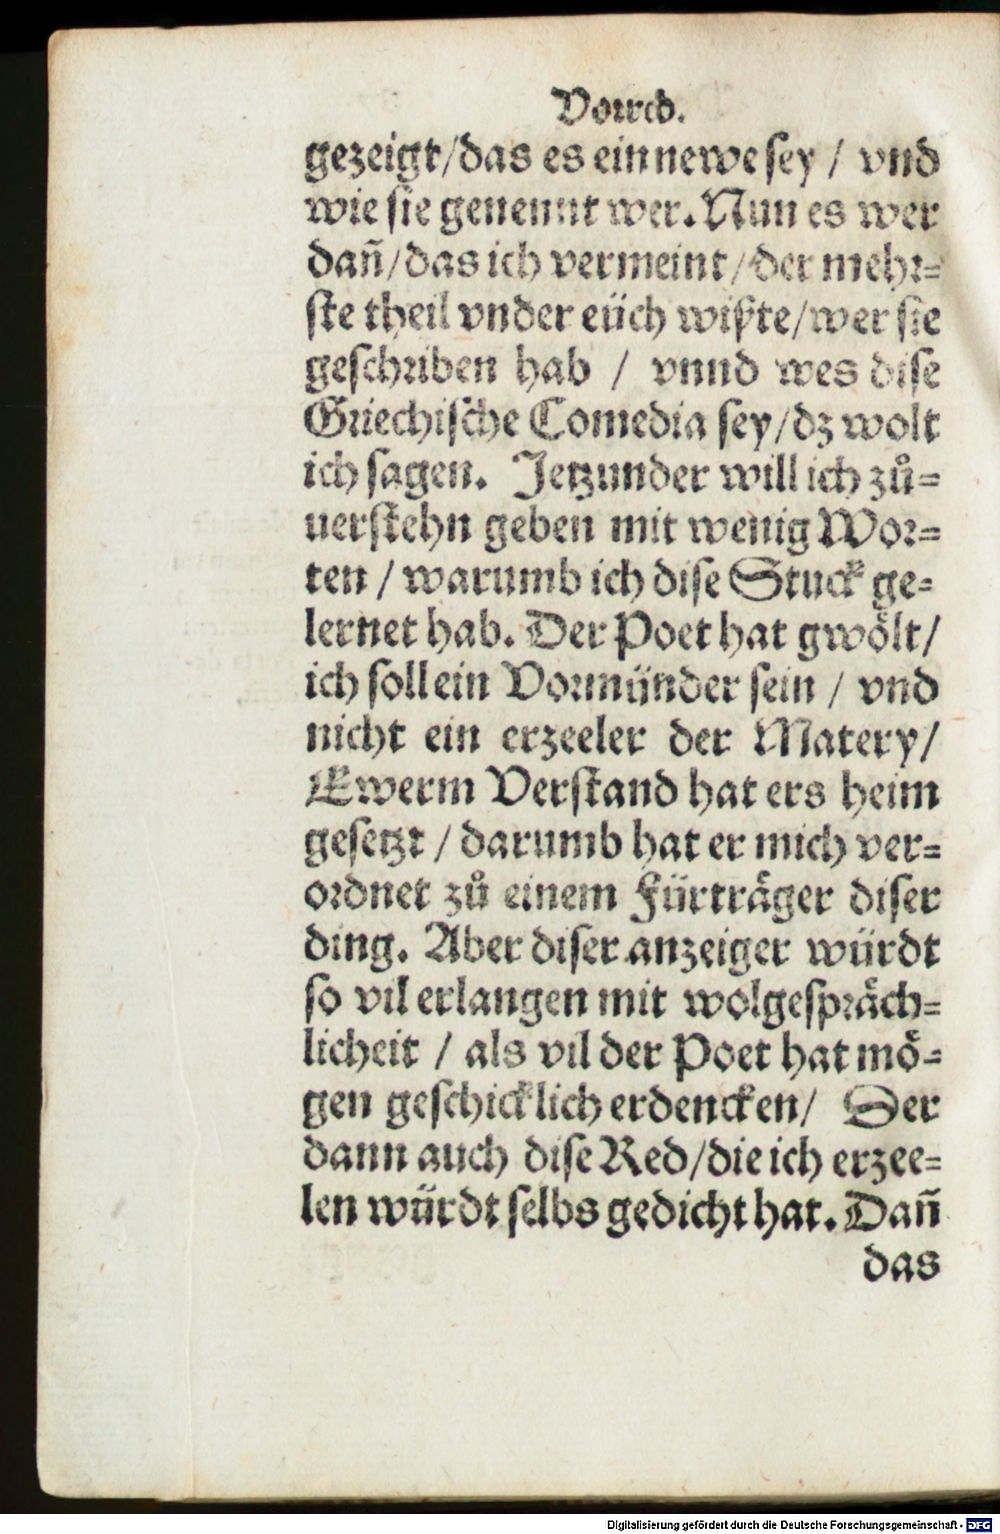 Vorred.
gezeigt/das es ein newe sey / vnd
wie sie genennt wer. Nun es wer
dañ/das ich vermeint/der mehr-
ste theil vnder eüch wißte/wer sie
geschriben hab / vnnd wes dise
Griechische Comedia sey/dz wolt
ich sagen. Jetzunder will ich zů-
uerstehn geben mit wenig Wor-
ten / warumb ich dise Stuck ge-
lernet hab. Der Poet hat gwölt/
ich soll ein Vormünder sein / vnd
nicht ein erzeeler der Matery/
Ewerm Verstand hat ers heim
gesetzt / darumb hat er mich ver-
ordnet zů einem Fürträger diser
ding. Aber diser anzeiger würdt
so vil erlangen mit wolgespräch-
licheit / als vil der Poet hat mö-
gen geschicklich erdencken/ Der
dann auch dise Red/die ich erzee-
len würdt selbs gedicht hat. Dañ
das
Digitalisierung gefördert durch die Deutsche Forschungsgemeinschaft - DFG